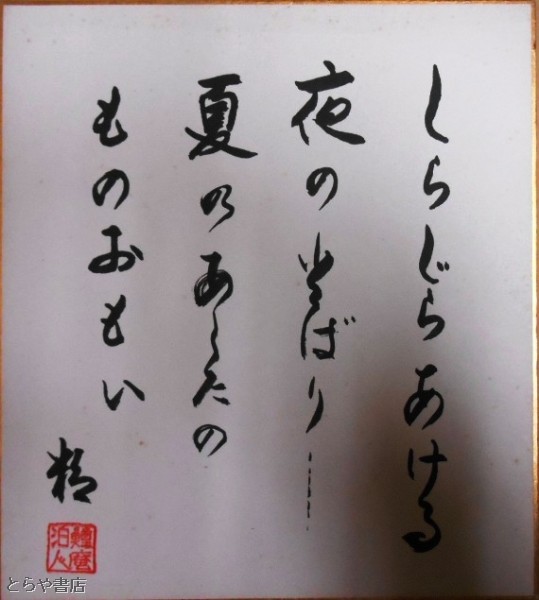 しらじらあける
夜のとばり……
夏のあしたの
ものおもい
精
とらや書店